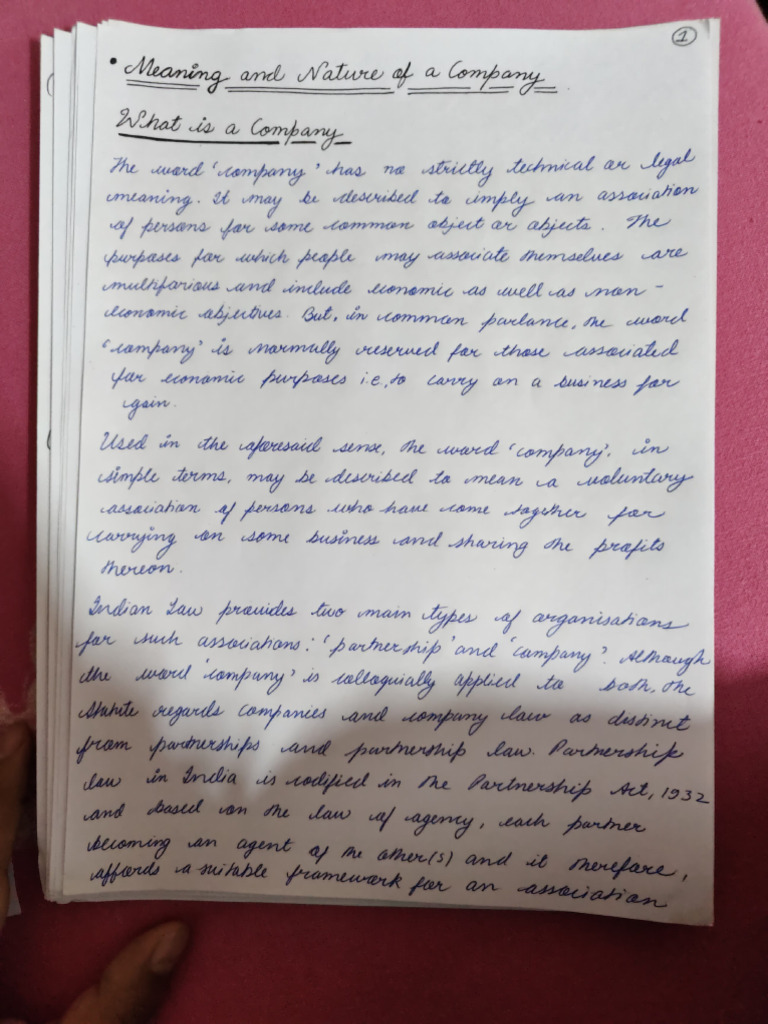 1
• Meaning and Nature of a Company
What is a Company
The word 'company' has no strictly technical or legal
meaning. It may be described to imply an association
of persons for some common object or objects. The
purposes for which people may associate themselves are
multifarious and include economic as well as non-
economic objectives. But, in common parlance, the word
'company' is normally reserved for those associated
for economic purposes i.e., to carry on a business for
gain.
Used in the aforesaid sense, the word 'company', in
simple terms, may be described to mean a voluntary
association of persons who have come together for
carrying on some business and sharing the profits
thereon.
Indian Law provides two main types of organisations
for such associations: 'partnership' and 'company'. Although
the word 'company' is colloquially applied to both, the
Statute regards companies and company law as distinct
from partnerships and partnership law. Partnership
law in India is codified in the Partnership Act, 1932
and based on the law of agency, each partner
becoming an agent of the other(s) and it therefore,
affords a suitable framework for an association